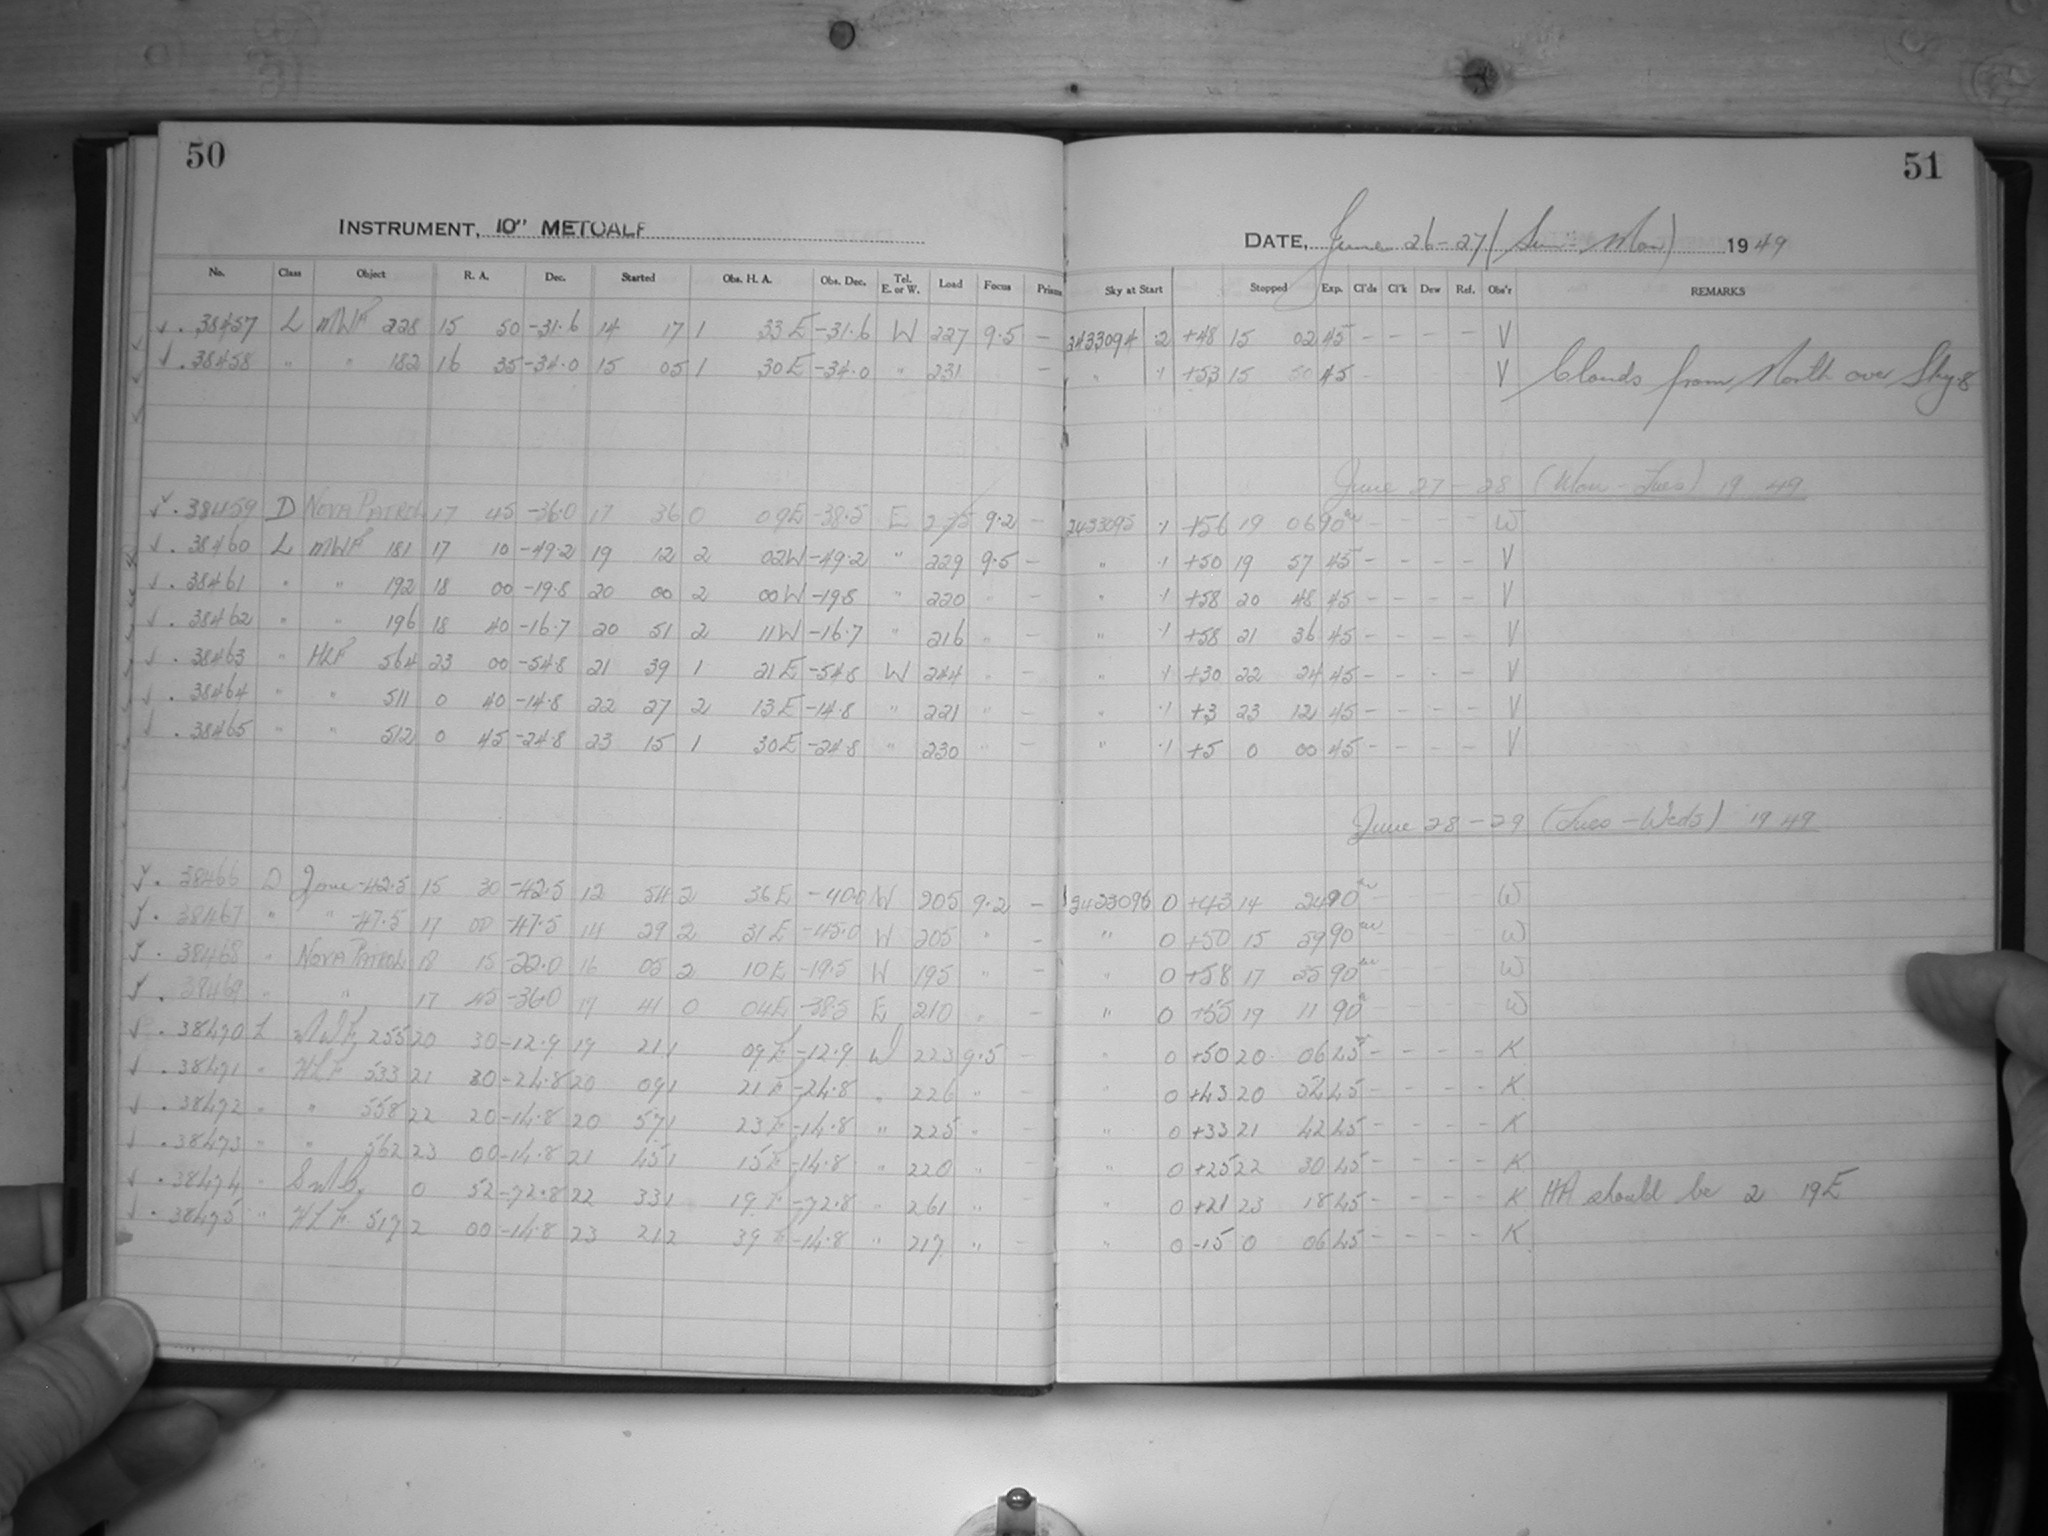 50
51
INSTRUMENT, 10" METCALF
DATE, June 26-27 (Sun-Mon) 1949
No. Class Object R. A. Dec. Started Obs. H. A. Obs. Dec. Tel. E. or W. Load Focus Prism Sky at Start Stopped Exp. Cl'ds Cl'k Dew Ref. Obs'r REMARKS
√ . 38457 L MWF 228 15 50 -31.6 14 17 1 33 E -31.6 W 227 9.5 — 2433094 .2 +48 15 02 45 - - - - V
√ . 38458 " " 182 16 35 -34.0 15 05 1 30 E -34.0 " 231 — " .1 +53 15 50 45 V Clouds from North over Sky.8
June 27-28 (Mon-Tues) 1949
√ . 38459 D NOVA PATROL 17 45 -36.0 17 36 0 09E -38.5 E 9.2 — 2433095 .1 +56 19 06 90 - - - - W
√ . 38460 L MWF 181 17 10 -49.2 19 12 2 02W -49.2 " 229 9.5 — " .1 +50 19 57 45 - - - - V
√ . 38461 " " 192 18 00 -19.8 20 00 2 00W -19.8 " 220 " — " .1 +58 20 48 45 - - - - V
√ . 38462 " " 196 18 40 -16.7 20 51 2 11W -16.7 " 216 " — " .1 +58 21 36 45 - - - - V
√ . 38463 " HLF 564 23 00 -54.8 21 39 1 21E -54.8 W 244 " — " .1 +30 22 24 45 - - - - V
√ . 38464 " " 511 0 40 -14.8 22 27 2 13E -14.8 " 221 " — " .1 +3 23 12 45 - - - - V
√ . 38465 " " 512 0 45 -24.8 23 15 1 30E -24.8 " 230 " — " .1 +5 0 00 45 - - - - V
June 28-29 (Tues-Weds) 1949
√ . 38466 D Zone -42.5 15 30 -42.5 12 54 2 36E -40.0 W 205 9.2 — 2423096 0 +43 14 24 90 - - - - W
√ . 38467 " " -47.5 17 00 -47.5 14 29 2 31E -45.0 W 205 " — " 0 +50 15 59 90 - - - - W
√ . 38468 " NOVA PATROL 18 15 -22.0 16 05 2 10E -19.5 W 195 " — " 0 +58 17 35 90 - - - - W
√ . 38469 " " 17 45 -36.0 17 41 0 04E -38.5 E 210 " — " 0 +55 19 11 90 - - - - W
√ . 38470 L MWF 255 20 30 -12.9 19 21 1 09E -12.9 W 223 9.5 — " 0 +50 20 06 45 - - - - K
√ . 38471 " HLF 533 21 30 -24.8 20 09 1 21E -24.8 " 226 " — " 0 +43 20 54 45 - - - - K
√ . 38472 " " 558 22 20 -14.8 20 57 1 23E -14.8 " 225 " — " 0 +33 21 42 45 - - - - K
√ . 38473 " " 562 23 00 -14.8 21 45 1 15E -14.8 " 220 " — " 0 +25 22 30 45 - - - - K
√ . 38474 " SMC 0 52 -72.8 22 33 1 19E -72.8 " 261 " — " 0 +21 23 18 45 - - - - K HA should be 2 19E
√ . 38475 " HLF 517 2 00 -14.8 23 21 2 39E -14.8 " 217 " — " 0 -15 0 06 45 - - - - K